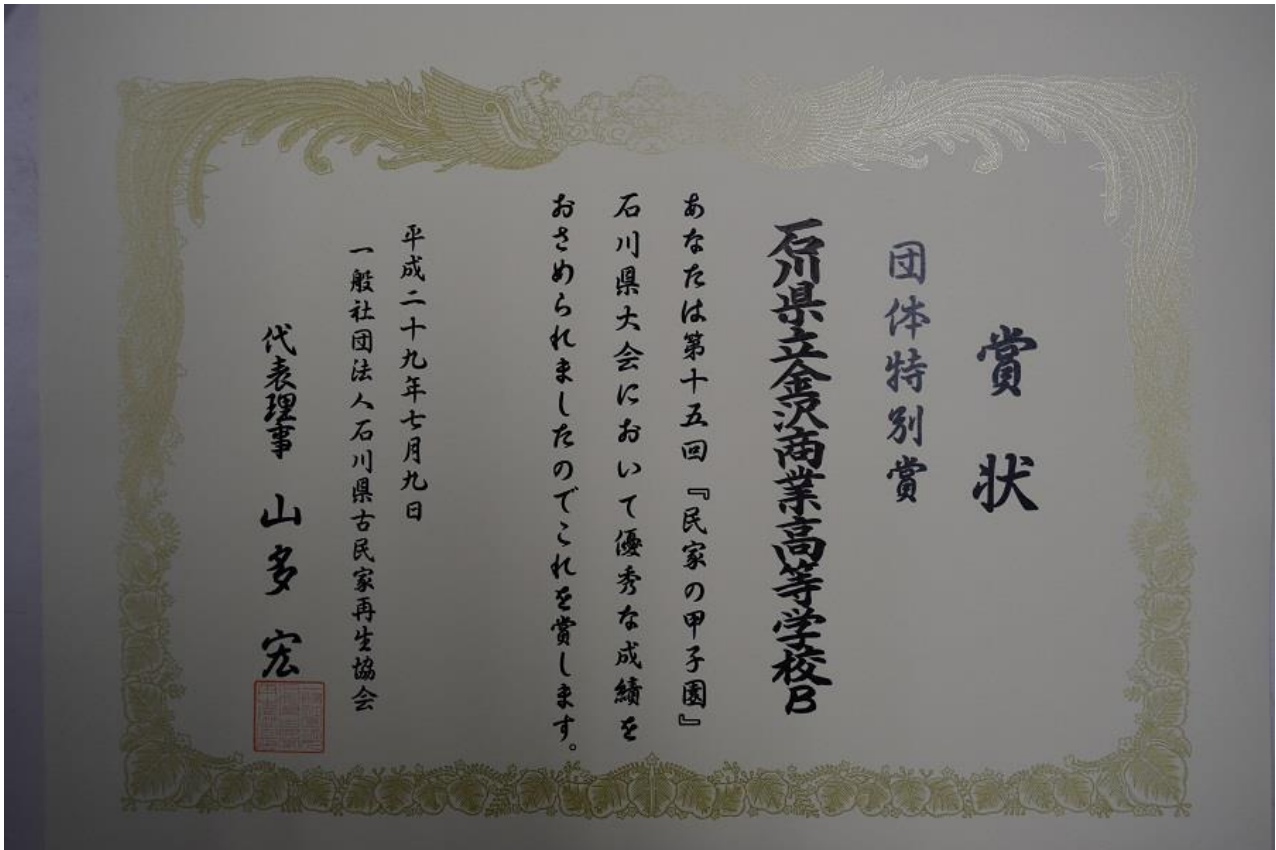 賞状
団体特別賞
石川県立金沢商業高等学校B
あなたは第十五回『民家の甲子園』
石川県大会において優秀な成績を
おさめられましたのでこれを賞します。
平成二十九年七月九日
一般社団法人石川県古民家再生協会
代表理事 山多宏